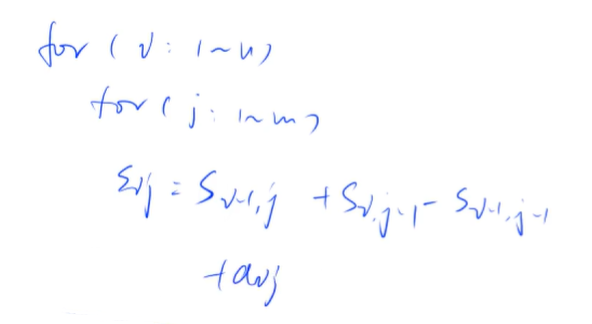 for ( i : 1~n )
for ( j : 1~m )
Sij = Si-1,j + Si,j-1 - Si-1,j-1
+ aij